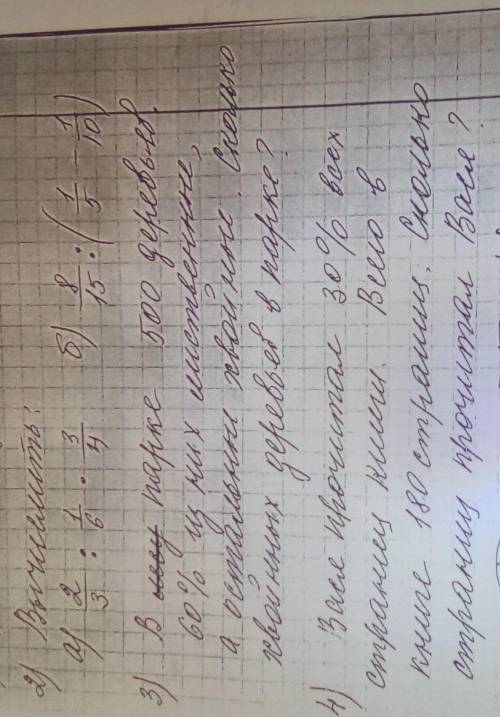 2) Вычислить:
а) 2/3 : 1/6 · 3/4 б) 8/15 : (1/5 - 1/10)
3) В парке 500 деревьев.
60% из них лиственные,
а остальные хвойные. Сколько
хвойных деревьев в парке?
4) Вася прочитал 30% всех
страниц книги. Всего в
книге 180 страниц. Сколько
страниц прочитал Вася?